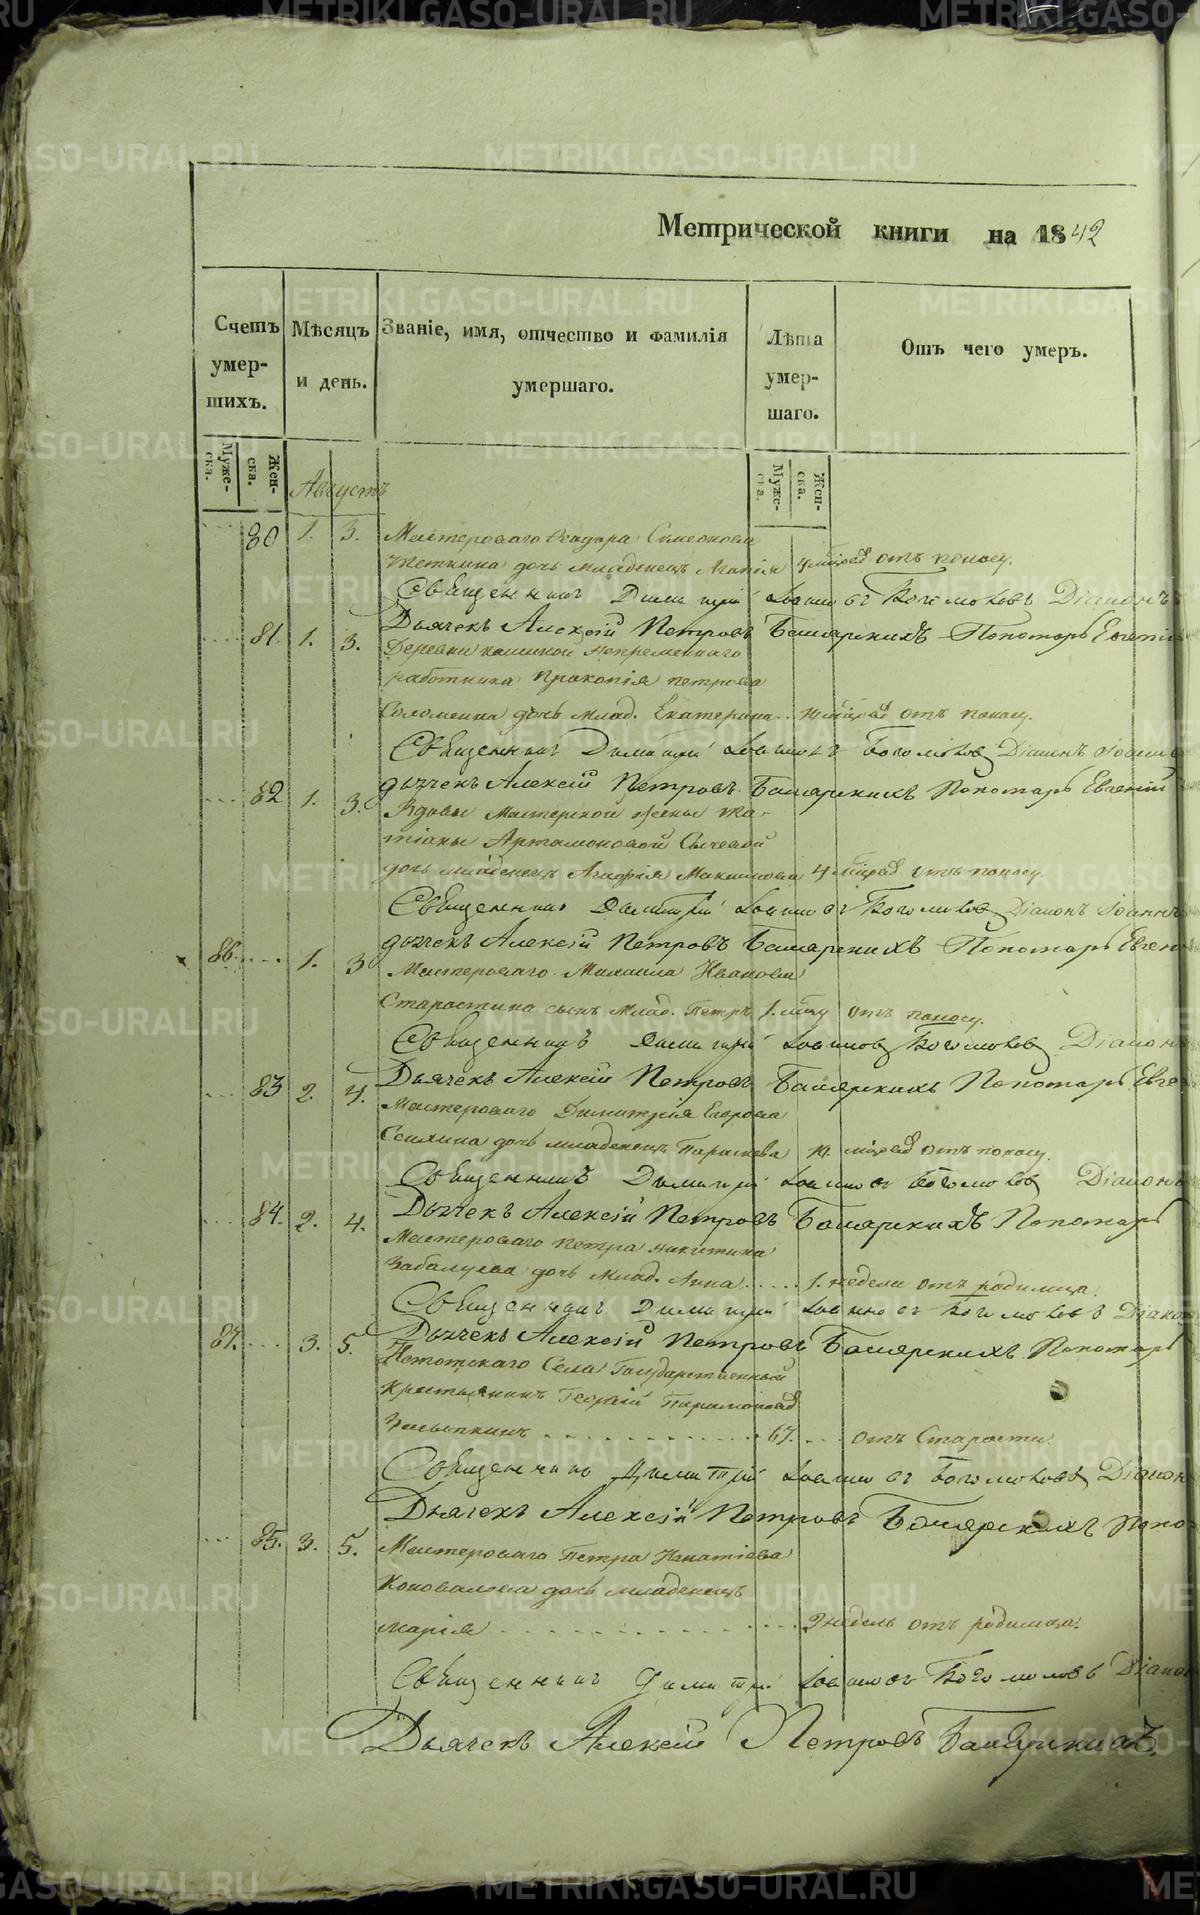 Метрической книги на 1842
Счетъ умер-шихъ.
Мѣсяцъ и день.
Званіе, имя, отчество и фамилія умершаго.
Лѣта умер-шаго.
Отъ чего умеръ.
Муже-ска.
Жен-ска.
Муже-ска.
Жен-ска.
Августъ
80 1. 3. Мастероваго Симеонова
дочь младенецъ 4 отъ поносу.
Священникъ Димитрій Богомоловъ Діаконъ
Дьячекъ Алексій Петровъ Башарскихъ Пономарь Евгеній
81. 1. 3. Деревни непремѣннаго
работника Прокопія Петрова
дочь млад. Екатерина отъ поносу.
Священникъ Димитрій Богомоловъ Діаконъ Іоаннъ
дьячекъ Алексій Петровъ Башарскихъ Пономарь Евгеній
82 1. 3. Вдовы Мастерской жены Та-
тіаны Артамоновой Сычевой
дочь младенецъ Максимова 4 отъ поносу.
Священникъ Димитрій Богомоловъ Діаконъ Іоаннъ
дьячекъ Алексій Петровъ Башарскихъ Пономарь Евген
86. 1. 3 Мастероваго Михаила Иванова
Старостина сынъ млад. Петръ 1. году отъ поносу.
Священникъ Димитрій Богомоловъ Діаконъ
83 2. 4. Дьячекъ Алексій Петровъ Башарскихъ Пономарь Евге
Мастероваго Димитрія Егорова
дочь младенецъ отъ поносу.
Священникъ Димитрій Богомоловъ Діаконъ
84. 2. 4. Дьячекъ Алексій Петровъ Башарскихъ Пономарь
Мастероваго Петра Никитина
Забалуева дочь млад. Анна 1. недели отъ родимца.
Священникъ Димитрій Богомоловъ Діаконъ
87. 3. 5. Дьячекъ Алексій Петровъ Башарскихъ Пономарь
Села Государственный
крестьянинъ Георгій Парамоновъ
67. отъ Старости.
Священникъ Димитрій Богомоловъ Діаконъ
Дьячекъ Алексій Петровъ Башарскихъ Поно
85. 3. 5. Мастероваго Петра Игнатіева
Коновалова дочь младенецъ
Марія 2 недель отъ родимца.
Священникъ Димитрій Богомоловъ Діакон
Дьячекъ Алексій Петровъ Башарскихъ.
METRIKI.GASO-URAL.RU